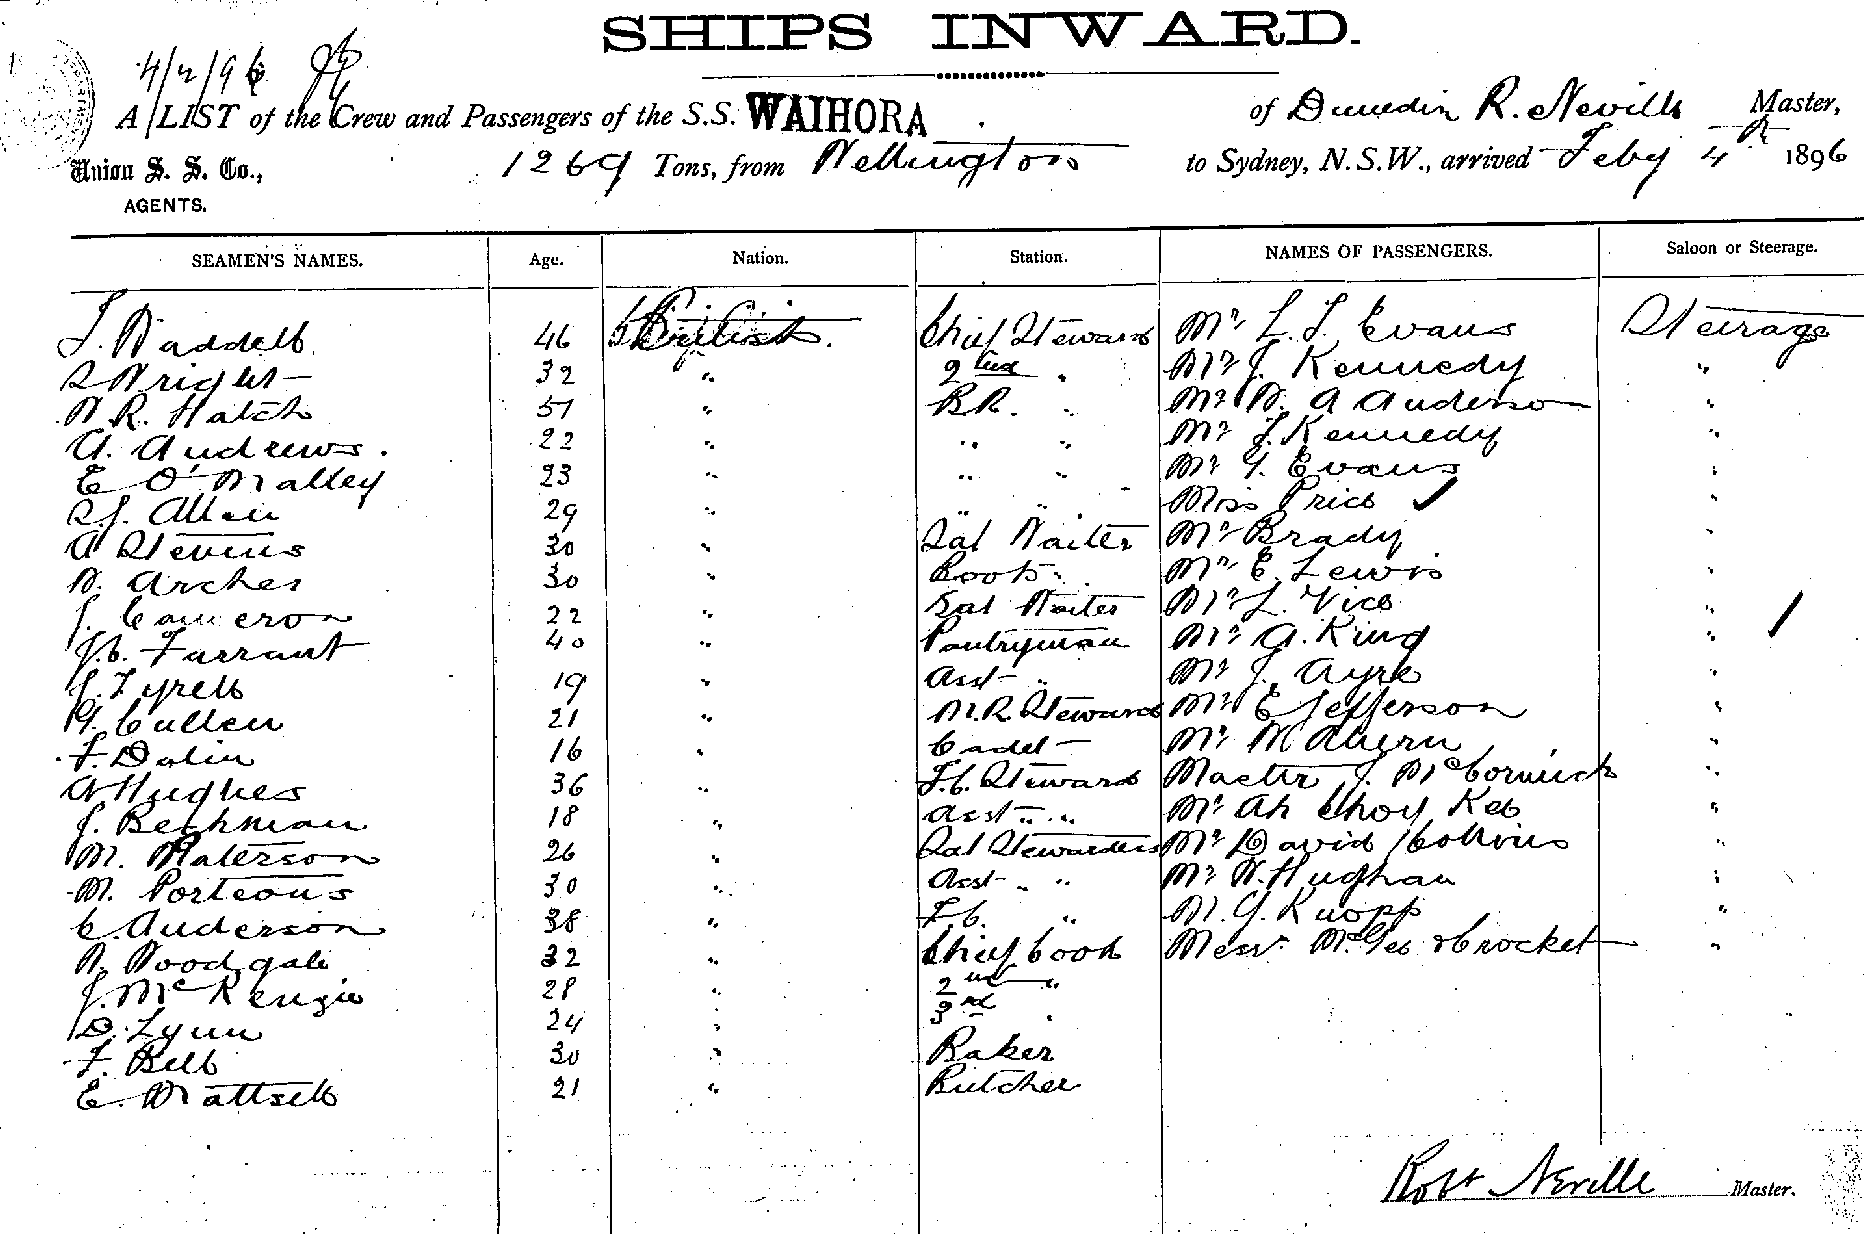 SHIPS INWARD.
4/2/96
A LIST of the Crew and Passengers of the S.S. WAIHORA of Dunedin R. Neville Master,
Union S. S. Co., 1269 Tons, from Wellington to Sydney, N.S.W., arrived Feby 4th 1896
AGENTS.
SEAMEN'S NAMES. Age. Nation. Station. NAMES OF PASSENGERS. Saloon or Steerage.
Waddell 46 British. Chief Steward Mr L. J. Evans Steerage
Wright 32 " 2nd " Mr J. Kennedy "
W. R. Hatch 51 " B.R. " Mr W. A Anderson "
A. Andrews. 22 " " " Mr J. Kennedy "
E O'Malley 23 " " " Mr G. Evans "
Allen 29 " " " Miss Price "
A Stevens 30 " Sal Waiter Mr Brady "
W. Archer 30 " Boots Mr E. Lewis "
J. Cameron 22 " Sal Waiter Mr L. Vice "
J.C. Farrant 40 " Pantryman Mr A. King "
J. Tyrell 19 " Asst " Mr J. Ayre "
G. Cullen 21 " M.R. Steward Mr E Jefferson "
F. Dolin 16 " Cadet Mr M Ahern "
A Hughes 36 " F.C. Steward Master J. McCormick "
J. Beckman 18 " Asst " " Mr Ah Choy Kee "
M. Paterson 26 " Sal Stewardess Mr David Collins "
M. Porteous 30 " Asst " " Mr W. Hughan "
C. Anderson 38 " F.C. " M. G. Knopp "
Woodgate 32 " Chief Cook Messr McGee & Crocket "
J. McKenzie 28 " 2nd "
D. Lynn 24 " 3rd "
F. Bell 30 " Baker
E. Mattsell 21 " Butcher
Robt Neville Master.